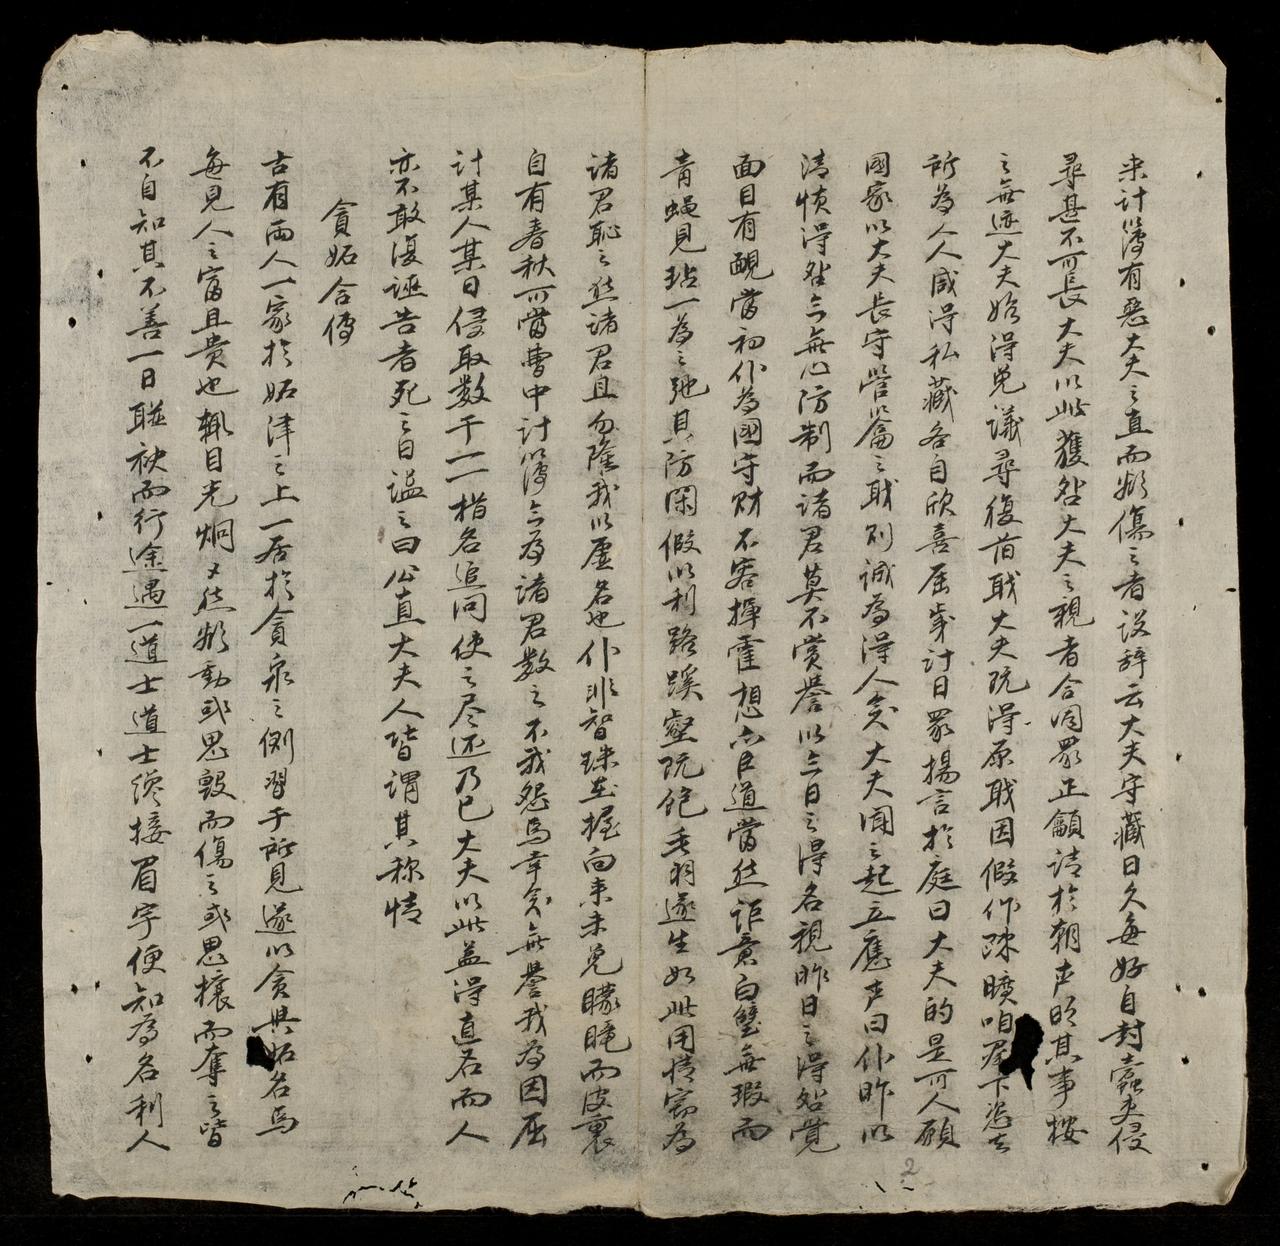 来计簿有惡大夫之直而欲傷之者设辞云大夫守藏日久每好自封蠹吏侵
尋甚不可長大夫以此獲咎大夫之親者合同眾正籲请於朝声明其事按
之無迹大夫始得免議尋復首戢大夫既得原戢因假作踈曠咱屬下恣
所為人人咸得私藏各自欣喜屈歲计日眾揚言於庭曰大夫的是可人願
國家以大夫長守管籥之戢則诚為得人矣大夫闻之起立應声曰仆昨以
清慎得咎今無心防制而诸君莫不赏譽以今日之得名視昨日之得咎覺
面目有靦當初仆為國守财不容揮霍想亦臣道當然讵意白璧無瑕而
青蠅見玷一為之弛其防闲假以利路蹊壑既飽毛羽遂生如此用情窃為
诸君恥之然诸君且勿陰我以虚名也仆非智珠在握向来未免矇睡而皮裏
自有春秋所當曹中计簿今為诸君数之不我怨焉幸矣無譽我為因屈
计某人某日侵取数千一一指名追问使之尽还乃已大夫以此益得直名而人
亦不敢復诬告者死之日谥之曰公直大夫人皆谓其称情
貪妬合傳
古有兩人一家於妬津之上一居於貪泉之側習于所見遂以貪與妬名焉
每見人之富且贵也輒目光炯々然欲動或思毀而傷之或思攘而奪之皆
不自知其不善一日聯袂而行途遇一道士道士纔接眉宇便知為名利人
2